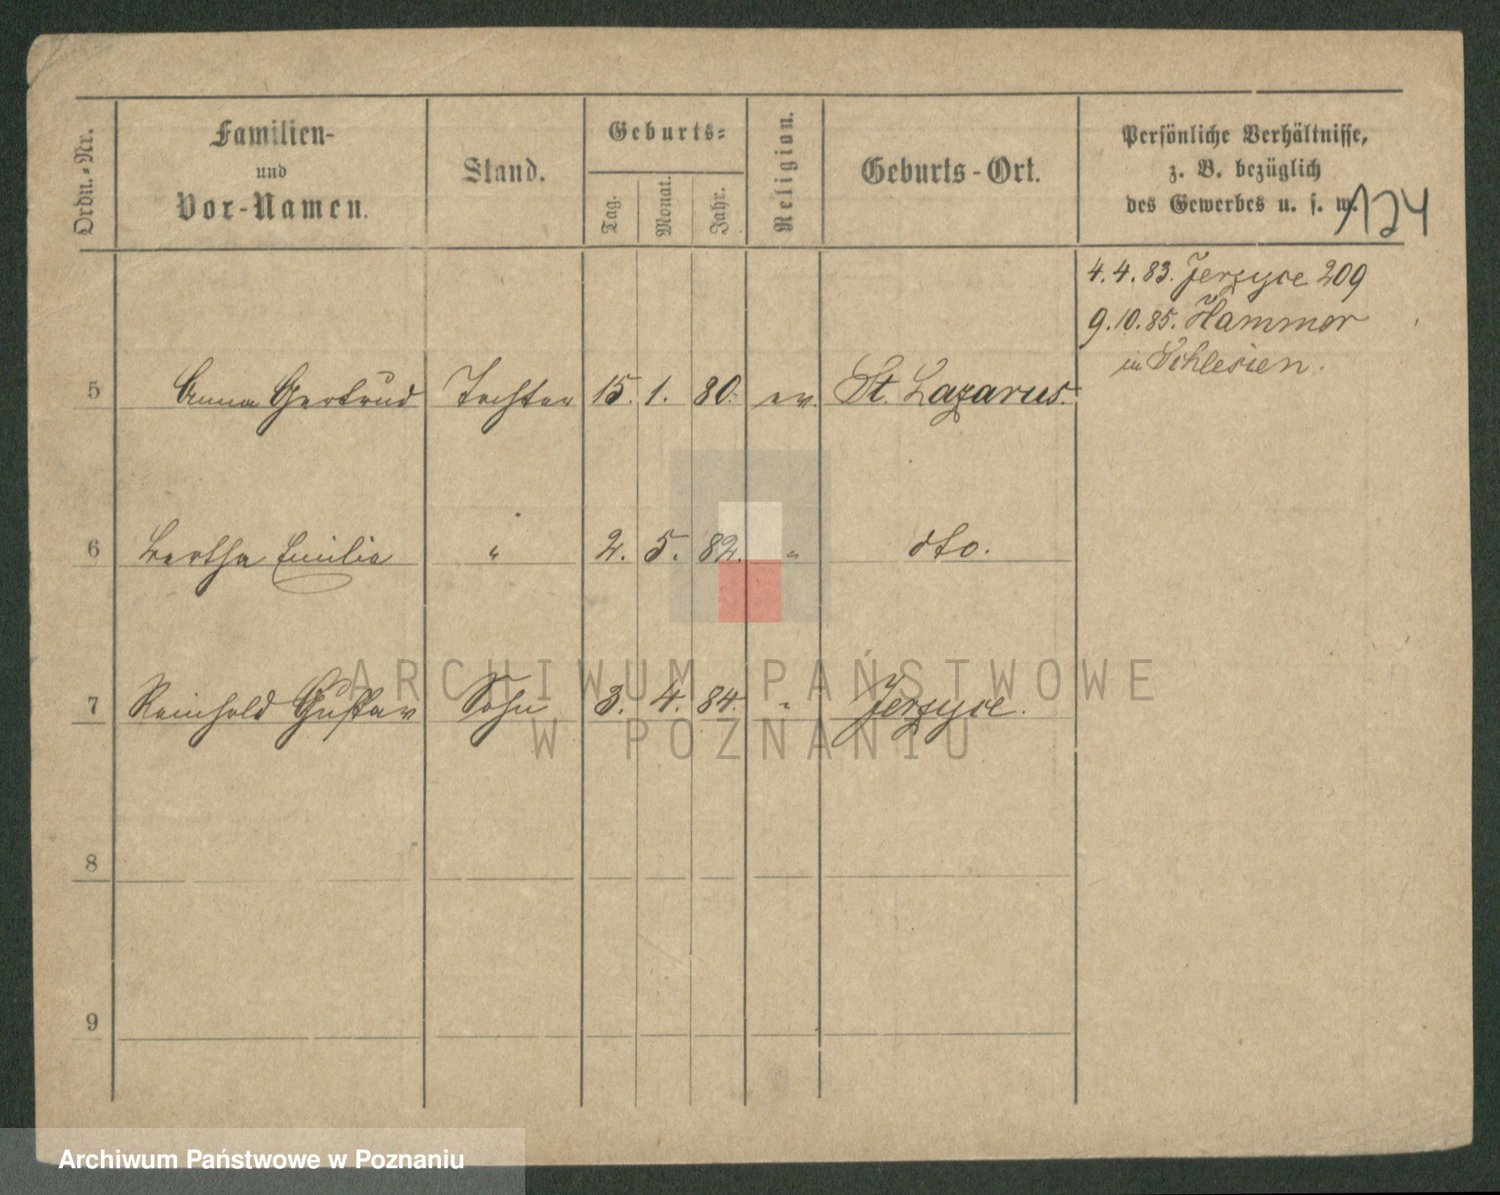 Ordn.-Nr.
Familien-
und
Vor-Namen.
Stand.
Geburts-
Tag.
Monat.
Jahr.
Religion.
Geburts-Ort.
Persönliche Verhältnisse,
z. B. bezüglich
des Gewerbes u. s. w.
124
4.4.83. Jerzyce 209
9.10.85. Hammer
in Schlesien.
5 Anna Gertrud Tochter 15. 1. 80. ev. St. Lazarus.
6 Bertha Emilie " 2. 5. 82. " dto.
7 Reinhold Gustav Sohn 3. 4. 84. " Jerzyce.
8
9
ARCHIWUM PAŃSTWOWE
W POZNANIU
Archiwum Państwowe w Poznaniu